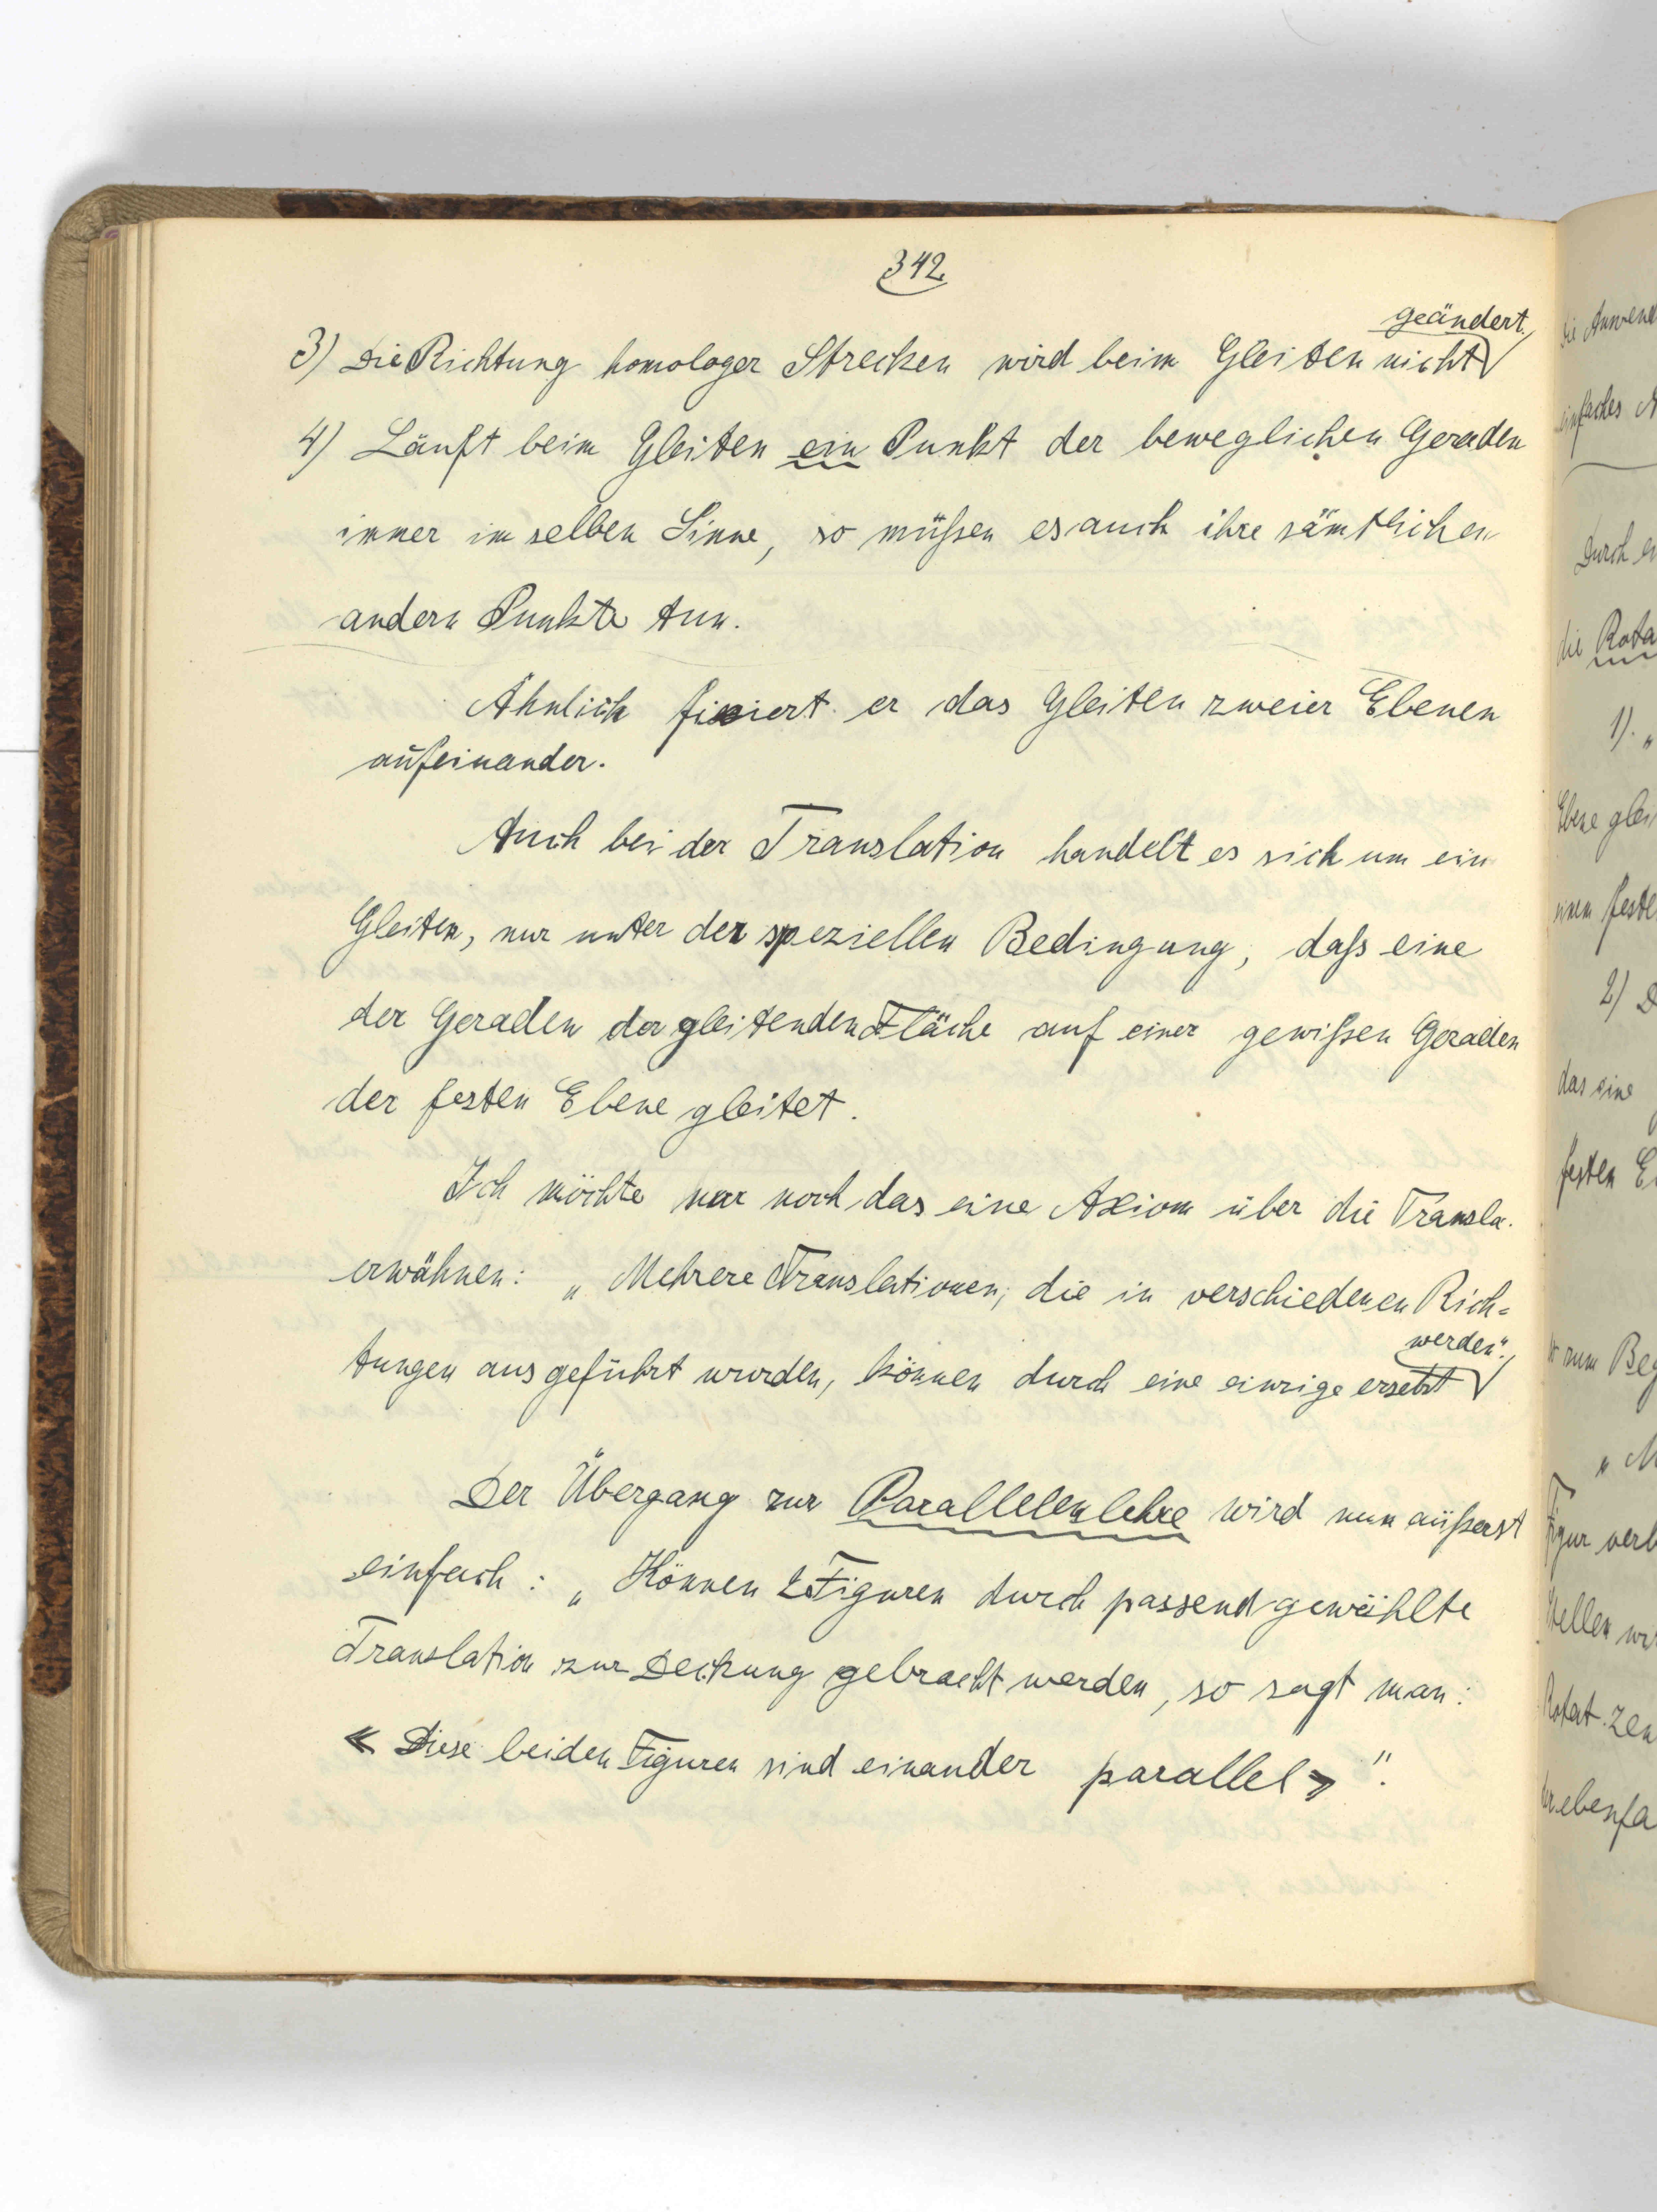 342.
geändert.
3) Die Richtung homologer Strecken wird beim Gleiten nicht
4) Läuft beim Gleiten ein Punkt der beweglichen Geraden
immer im selben Sinne, so müßen es auch ihre sämtlichen
andern Punkte tun.
Ähnlich fixiert er das Gleiten zweier Ebenen
aufeinander.
Auch bei der Translation handelt es sich um ein
Gleiten, nur unter der speziellen Bedingung, daß eine
der Geraden der gleitenden Fläche auf einer gewißen Geraden
der festen Ebene gleitet.
Ich möchte nur noch das eine Axiom über die Transla.
erwähnen: „Mehrere Translationen, die in verschiedenen Rich=
werden".
tungen ausgeführt wurden, können durch eine einzige ersetzt
Der Übergang zur Parallelenlehre wird nun äußerst
einfach: „Können 2 Figuren durch passend gewählte
Translation zur Deckung gebracht werden, so sagt man:
« Diese beiden Figuren sind einander parallel »".
die Anwend
einfaches A
Durch ei
die Rota
1). „
Ebene glei
einen feste
2) D
das eine
festen E
zum Beg
„ M
Figur verb
stellen wi
Rotat. zen
ebenfa